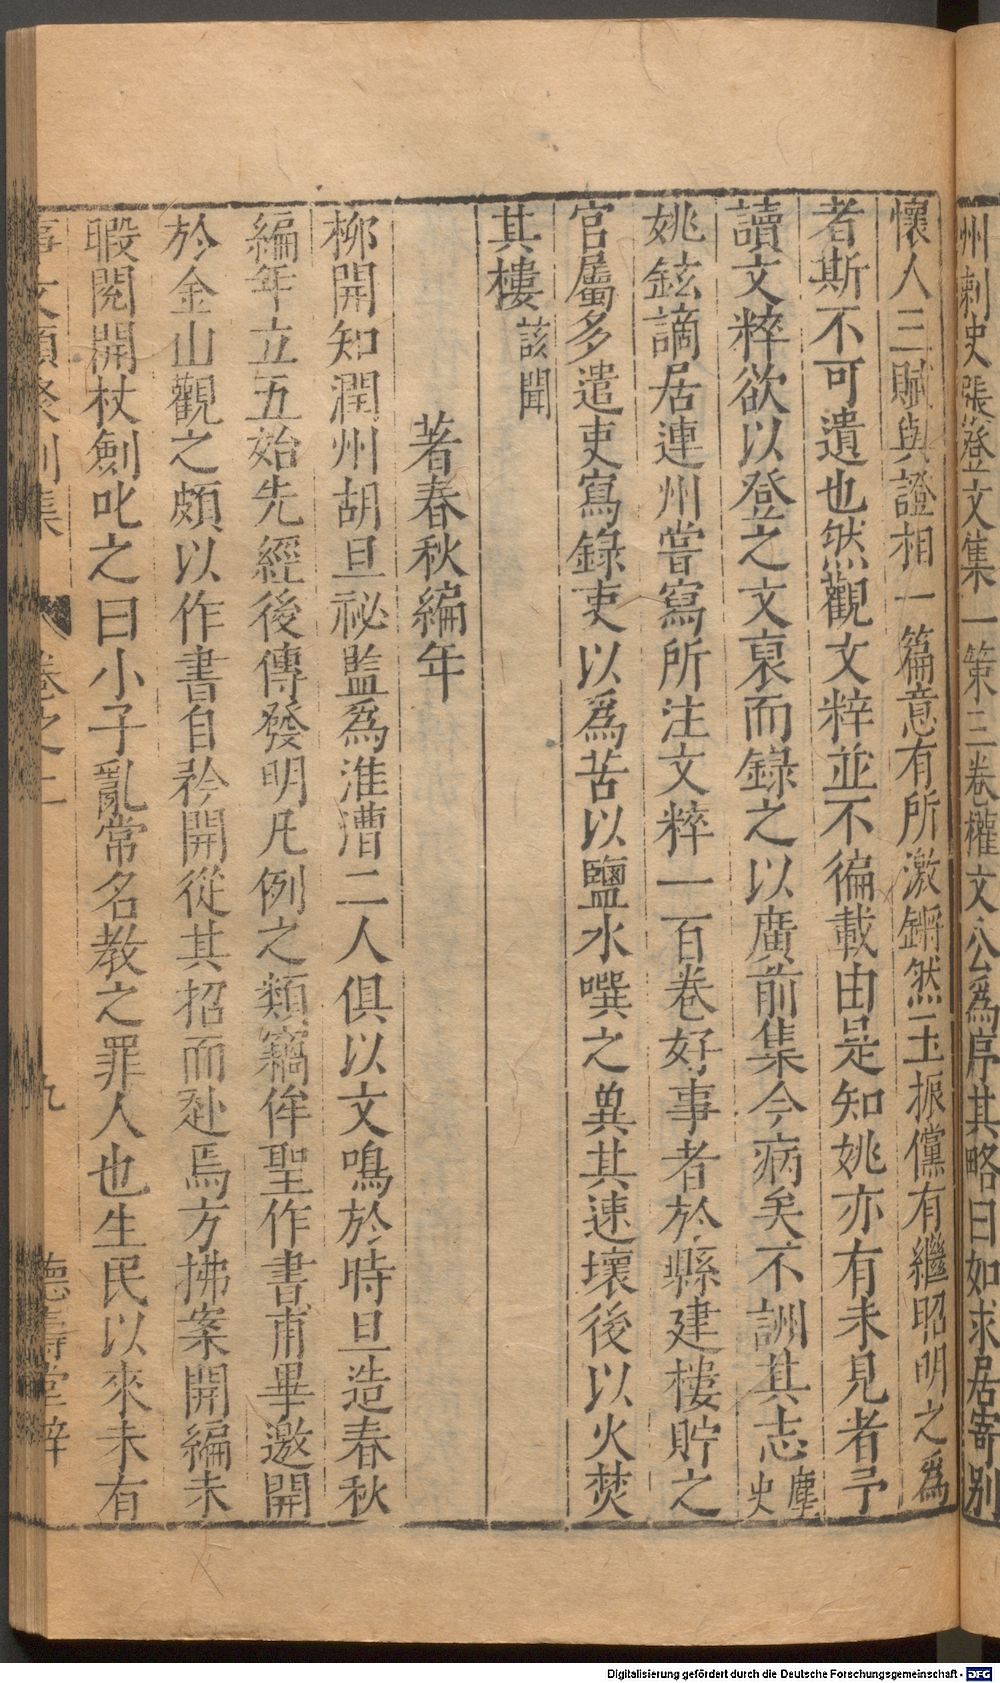 州刺史張登文集一策三卷權文公爲序其略曰如求居寄别
懷人三賦與證相一篇意有所激鏘然玉振儻有繼昭明之爲
者斯不可遺也然觀文粹並不徧載由是知姚亦有未見者予
讀文粹欲以登之文裒而錄之以廣前集今病矣不詶其志麈史
姚鉉謫居連州嘗寫所注文粹一百卷好事者於縣建樓貯之
官屬多遣吏寫錄吏以爲苦以鹽水噀之異其速壞後以火焚
其樓該聞
著春秋編年
柳開知潤州胡旦祕監爲淮漕二人俱以文鳴於時旦造春秋
編年立五始先經後傳發明凡例之類竊侔聖作書甫畢邀開
於金山觀之頗以作書自矜開從其招而赴焉方拂案開編未
暇閱開杖劍叱之曰小子亂常名教之罪人也生民以來未有
事文類聚別集 卷之二 九 德壽堂梓
Digitalisierung gefördert durch die Deutsche Forschungsgemeinschaft - DFG